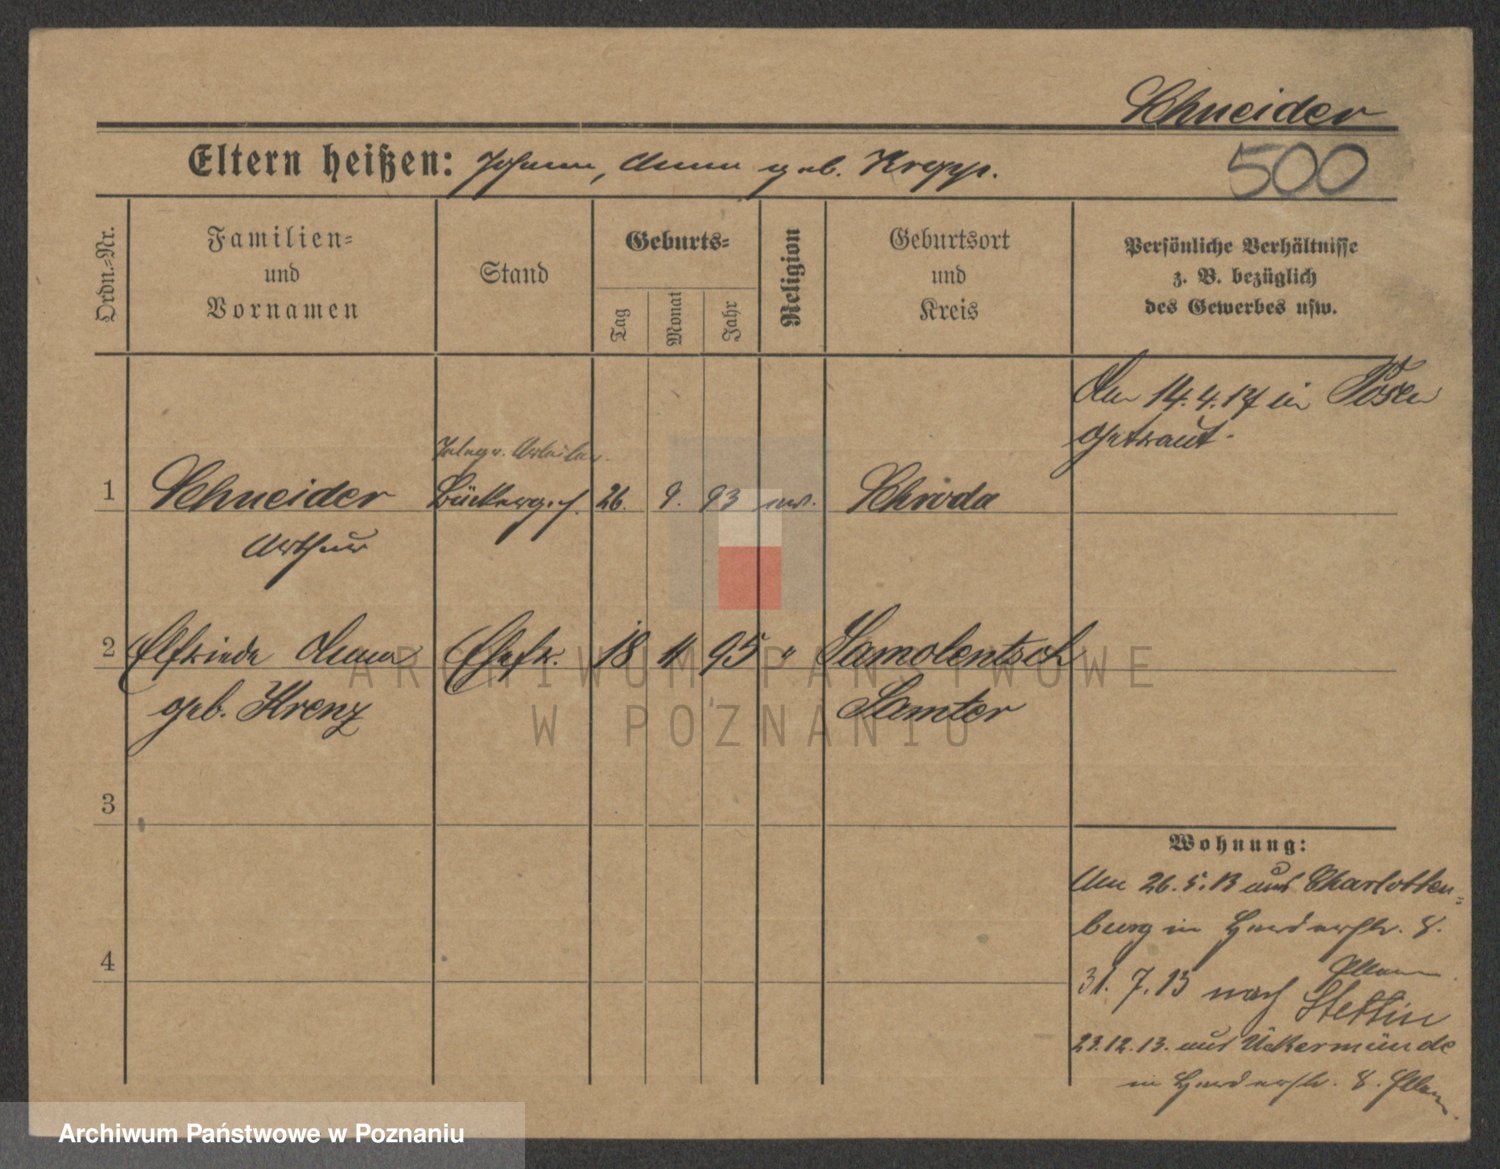 Schneider
Eltern heißen: Johann, Anna geb. Kropp.
500
Ordn.-Nr.
Familien-
und
Vornamen
Stand
Geburts-
Tag
Monat
Jahr
Religion
Geburtsort
und
Kreis
Persönliche Verhältnisse
z. B. bezüglich
des Gewerbes usw.
Am 14.4.17 in Posen
getraut.
Telegr. Arbeiter.
1 Schneider Bäckerges. 26. 9. 93 ev. Schroda
Arthur
2 Elfriede Anna Ehefr. 18 11 95 " Samolentsch
geb. Krenz Samter
3
4
Wohnung:
Am 26.5.13 aus Charlotten-
burg in Herderstr. 8.
Eltern
31.7.13 nach Stettin
23.12.13. aus Ückermünde
in Herderstr. 8. Eltern.
ARCHIWUM PAŃSTWOWE
W POZNANIU
Archiwum Państwowe w Poznaniu